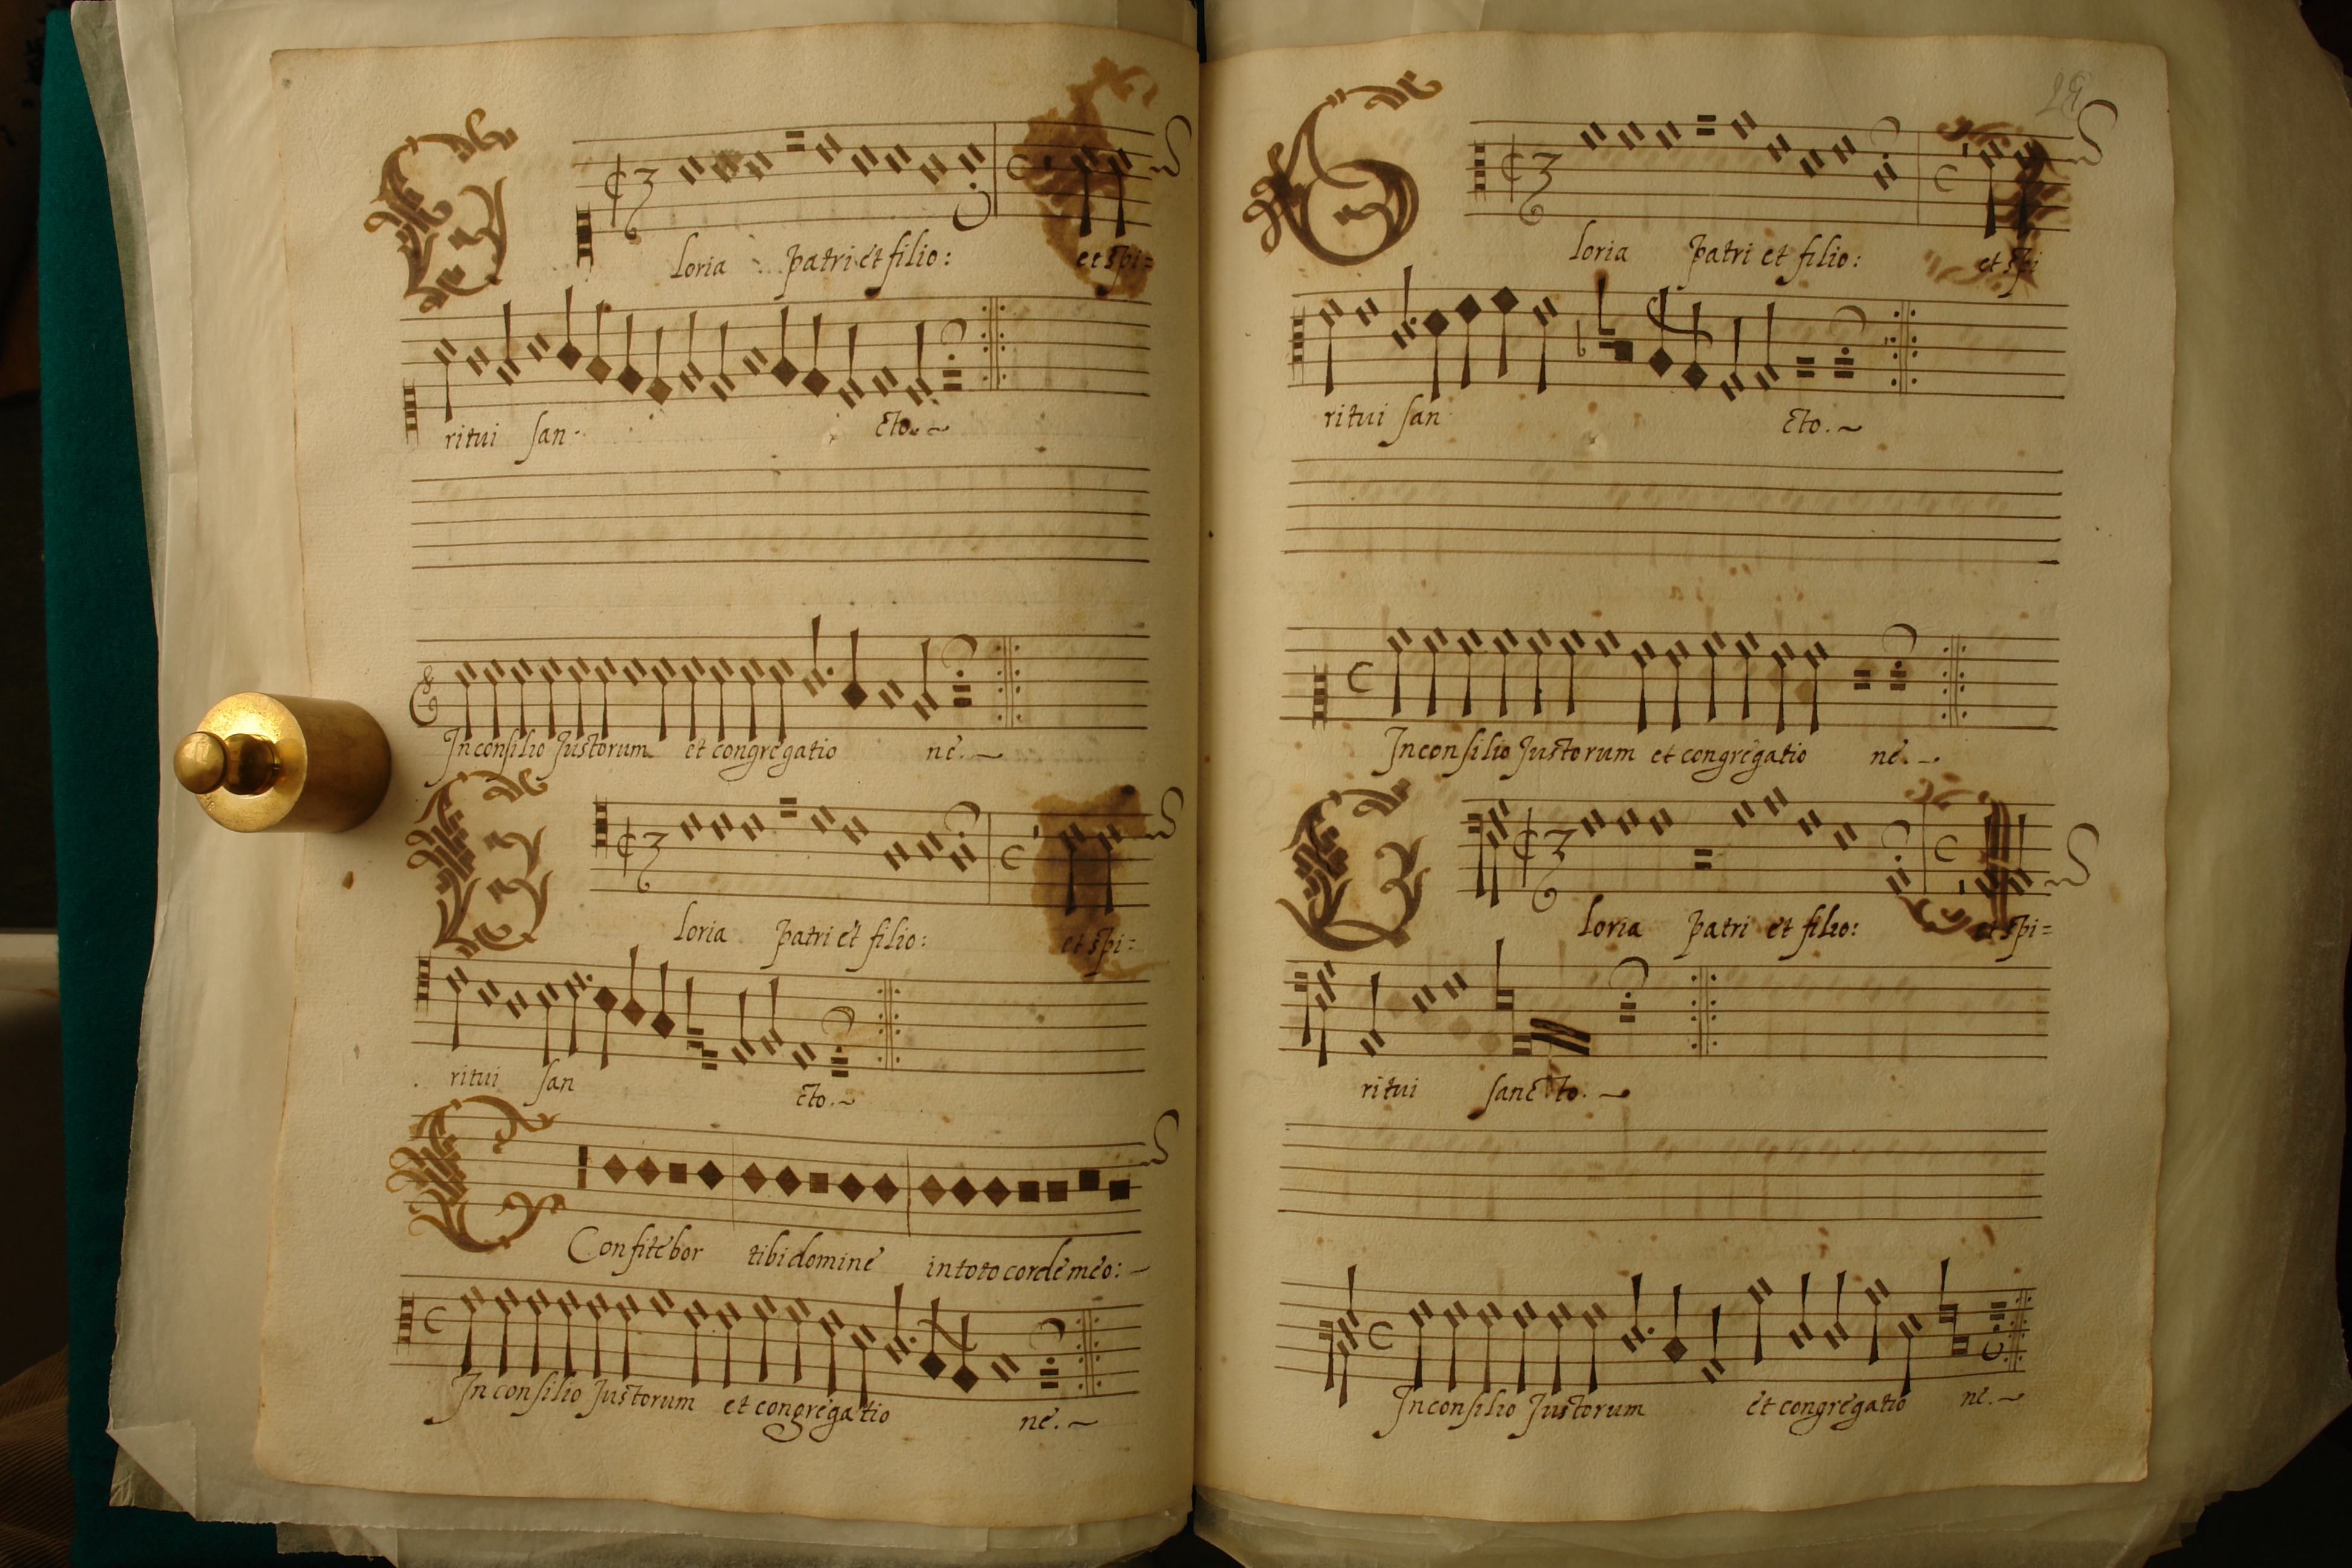 Gloria patri et filio: et spi=
ritui san- cto.~
In consilio Justorum et congregatio ne.~
Gloria patri et filio: et spi=
ritui san cto.~
Confitebor tibi domine in toto corde meo:-
In consilio Justorum et congregatio ne.~
Gloria patri et filio: et spi
ritui san cto.~
In consilio Justorum et congregatio ne.~
Gloria patri et filio: et spi=
ritui sancto.~
In consilio Justorum et congregatio ne.~